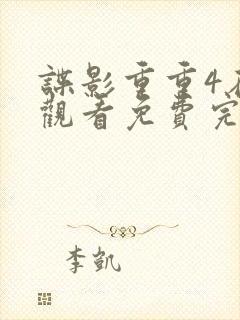 諜影重重4
觀看免費完
李凱